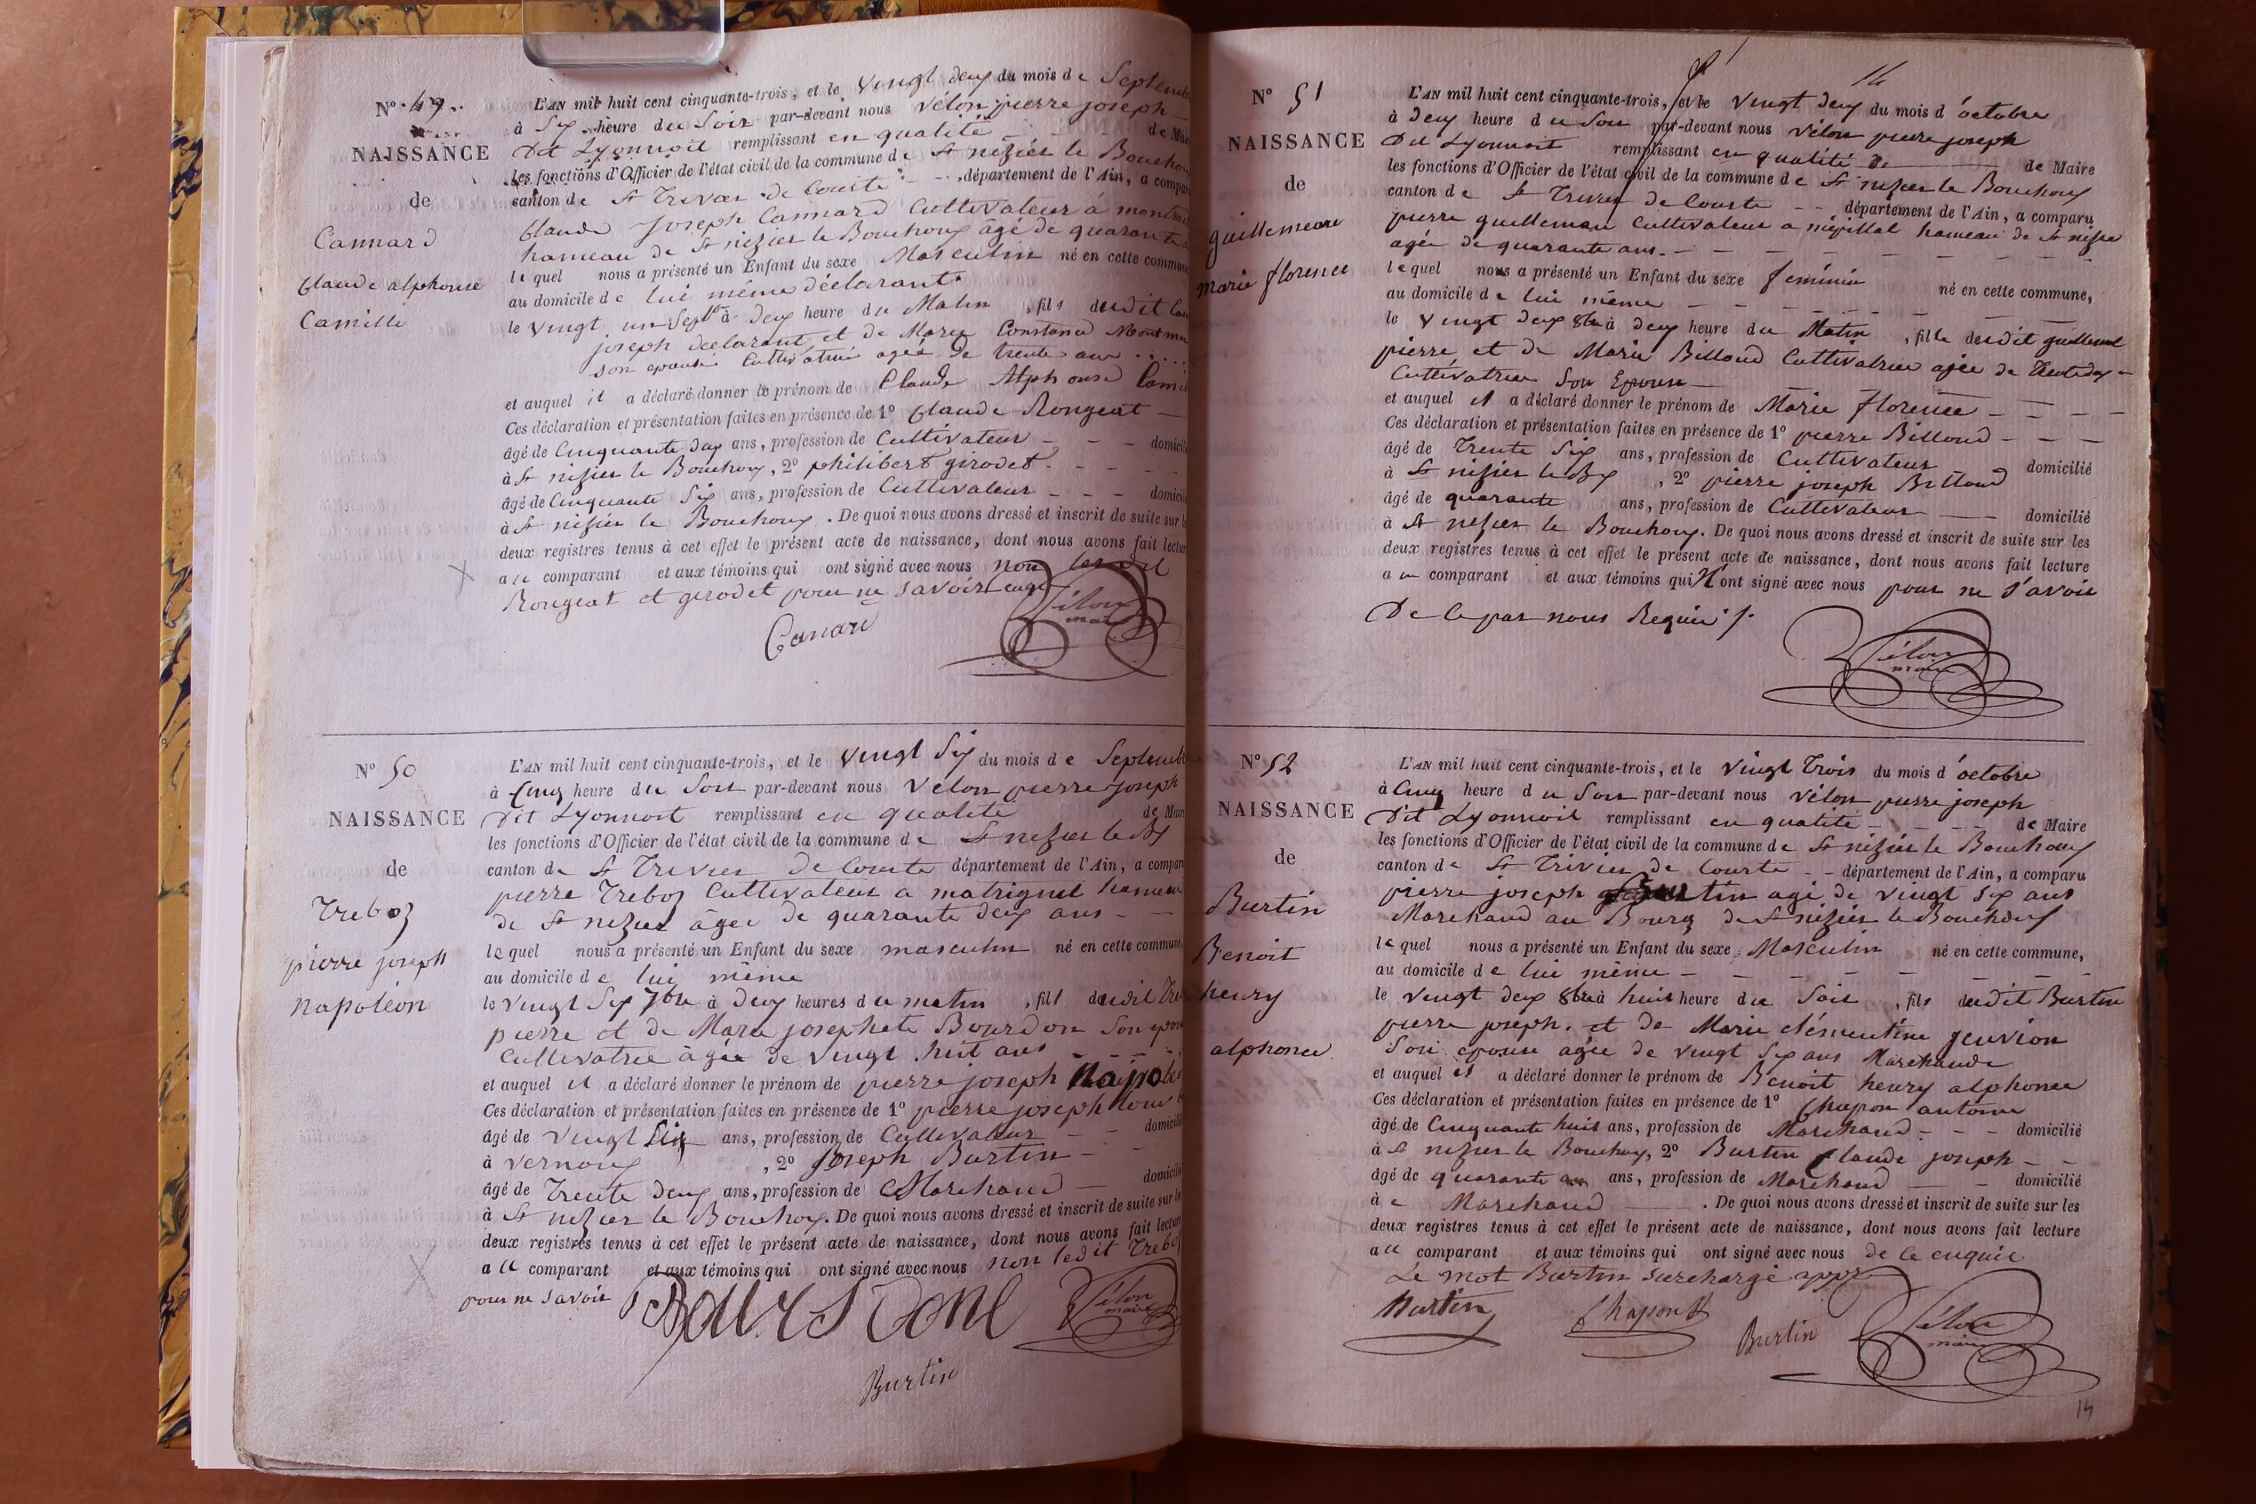 N° 49
NAISSANCE
de
Cannard
Claude alphonse
Camille
L'AN mil huit cent cinquante-trois, et le Vingt deux du mois de Septemb
à Six heure du Soir par-devant nous Vélon pierre joseph
Dit Lyonnoit remplissant en qualité de Mai
les fonctions d'Officier de l'état civil de la commune de St nizier le Bouchou
canton de St Trivier de Courte département de l'Ain, a compar
Claude Joseph Cannard Cultivateur à
hameau de St nizier le Bouchoux âgé de quarante
lequel nous a présenté un Enfant du sexe Masculin né en cette commune
au domicile de lui même déclarant
le vingt un Sept à deux heure du Matin , fils dudit
joseph declarant et de Marie Constance
son epouse Cultivatrice agée de trente ans
et auquel il a déclaré donner le prénom de Claude Alphonse Cami
Ces déclaration et présentation faites en présence de 1° Claude Rongeat
âgé de Cinquante deux ans, profession de Cultivateur domicili
à St nizier le Bouchoux, 2° philibert girodet
âgé de Cinquante Six ans, profession de Cultivateur domicili
à St nizier le Bouchoux. De quoi nous avons dressé et inscrit de suite sur l
deux registres tenus à cet effet le présent acte de naissance, dont nous avons fait lectur
au comparant et aux témoins qui ont signé avec nous non
Rongeat et girodet pour ne savoir
Canard
Vélon
maire
N° 50
NAISSANCE
de
Treboz
pierre joseph
napoléon
L'AN mil huit cent cinquante-trois, et le vingt Six du mois de Septemb
à Cinq heure du Soir par-devant nous Vélon pierre joseph
Dit Lyonnoit remplissant en qualité de Mair
les fonctions d'Officier de l'état civil de la commune de St nizier le Bx
canton de St Trivier de Courte département de l'Ain, a compar
pierre Treboz Cultivateur a matrignet hameau
de St nizier âgée de quarante deux ans
lequel nous a présenté un Enfant du sexe masculin né en cette commune
au domicile de lui même
le Vingt Six 7bre à deux heures du matin , fils dudit Tre
pierre et de Marie josephete Bourdon Son epou
Cultivatrice âgée de vingt huit ans
et auquel il a déclaré donner le prénom de pierre joseph Napolé
Ces déclaration et présentation faites en présence de 1° pierre joseph
âgé de vingt Six ans, profession de Cultivateur domicili
à vernoux , 2° Joseph Burtin
âgé de Trente deux ans, profession de Marchand domicili
à St nizier le Bouchoux. De quoi nous avons dressé et inscrit de suite sur l
deux registres tenus à cet effet le présent acte de naissance, dont nous avons fait lectur
au comparant et aux témoins qui ont signé avec nous non ledit Treboz
pour ne savoir
Vélon
maire
Burtin
14
N° 51
NAISSANCE
de
guillemeau
marie florence
L'AN mil huit cent cinquante-trois, et le vingt deux du mois d'octobre
à deux heure du Soir par-devant nous Vélon pierre joseph
Dit Lyonnoit remplissant en qualité de de Maire
les fonctions d'Officier de l'état civil de la commune de St nizier le Bouchoux
canton de St Trivier de Courte département de l'Ain, a comparu
pierre guillemau Cultivateur a mépillat hameau de St nizier
agée de quarante ans
lequel nous a présenté un Enfant du sexe feminin né en cette commune,
au domicile de lui même
le vingt deux 8bre à deux heure du Matin , fille dudit guillemaut
pierre et de Marie Billoud Cultivatrice agée de Trentedeux
Cultivatrice Son Epouse
et auquel il a déclaré donner le prénom de Marie florence
Ces déclaration et présentation faites en présence de 1° pierre Billoud
âgé de Trente Six ans, profession de Cultivateur domicilié
à St nizier le Bx , 2° pierre joseph Billoud
âgé de quarante ans, profession de Cultivateur domicilié
à St nizier le Bouchoux. De quoi nous avons dressé et inscrit de suite sur les
deux registres tenus à cet effet le présent acte de naissance, dont nous avons fait lecture
au comparant et aux témoins qui N'ont signé avec nous pour ne Savoir
De ce par nous Requis
Vélon
maire
N° 52
NAISSANCE
de
Burtin
Benoit
henry
alphonse
L'AN mil huit cent cinquante-trois, et le vingt Trois du mois d'octobre
à Cinq heure du Soir par-devant nous Vélon pierre joseph
Dit Lyonnoit remplissant en qualité de Maire
les fonctions d'Officier de l'état civil de la commune de St nizier le Bouchoux
canton de St Trivier de Courte département de l'Ain, a comparu
pierre joseph Burtin agé de vingt six ans
Marchand au Bourg de St nizier le Bouchoux
lequel nous a présenté un Enfant du sexe Masculin né en cette commune,
au domicile de lui même
le vingt deux 8bre à huit heure du Soir , fils dudit Burtin
pierre joseph. et de Marie clémentine jeuvion
Son epouse agée de vingt Six ans Marchande
et auquel il a déclaré donner le prénom de Benoit henry alphonse
Ces déclaration et présentation faites en présence de 1° Chapon antoine
âgé de Cinquante huit ans, profession de Marchand domicilié
à St nizier le Bouchoux, 2° Burtin Claude joseph
âgé de quarante ans, profession de Marchand domicilié
à Marchand . De quoi nous avons dressé et inscrit de suite sur les
deux registres tenus à cet effet le présent acte de naissance, dont nous avons fait lecture
au comparant et aux témoins qui ont signé avec nous de ce enquis
Le mot Burtin surchargé
Burtin
Chapon
Burtin
Vélon
maire
14